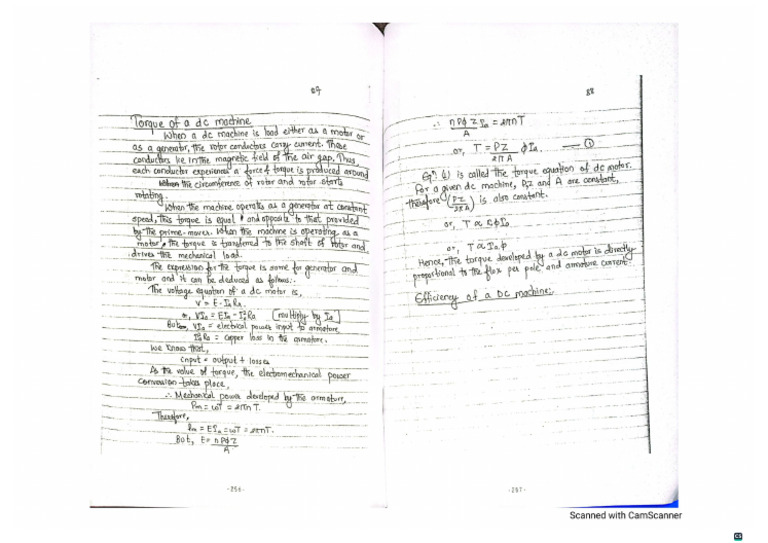 89
Torque of a dc machine
When a dc machine is load either as a motor or
as a generator, the rotor conductors carry current. These
conductors lie in the magnetic field of the air gap. Thus
each conductor experiences a force & torque is produced around
the circumference of rotor and rotor starts
rotating.
When the machine operates as a generator at constant
speed, this torque is equal and opposite to that provided
by the prime-mover. When the machine is operating as a
motor, the torque is transferred to the shaft of rotor and
drives the mechanical load.
The expression for the torque is same for generator and
motor and it can be deduced as follows:-
The voltage equation of a dc motor is,
V = E + IaRa
or, VIa = EIa + Ia²Ra [multiply by Ia]
But, VIa = electrical power input to armature
Ia²Ra = copper loss in the armature.
We know that,
input = output + losses
As the value of torque, the electromechanical power
conversion takes place,
∴ Mechanical power developed by the armature,
Pm = ωT = 2πnT.
Therefore,
Pm = EIa = ωT = 2πnT.
But, E = nPϕZ/A
-256-
88
∴ nPϕZ/A Ia = 2πnT
or, T = PZ/2πA ϕIa — (1)
Eqn (1) is called the torque equation of dc motor.
For a given dc machine, P,Z and A are constant,
therefore (PZ/2πA) is also constant.
or, T ∝ ϕIa
or, T ∝ Iaϕ
Hence, the torque developed by a dc motor is directly
proportional to the flux per pole and armature current.
Efficiency of a DC machine:-
-257-
Scanned with CamScanner
CS